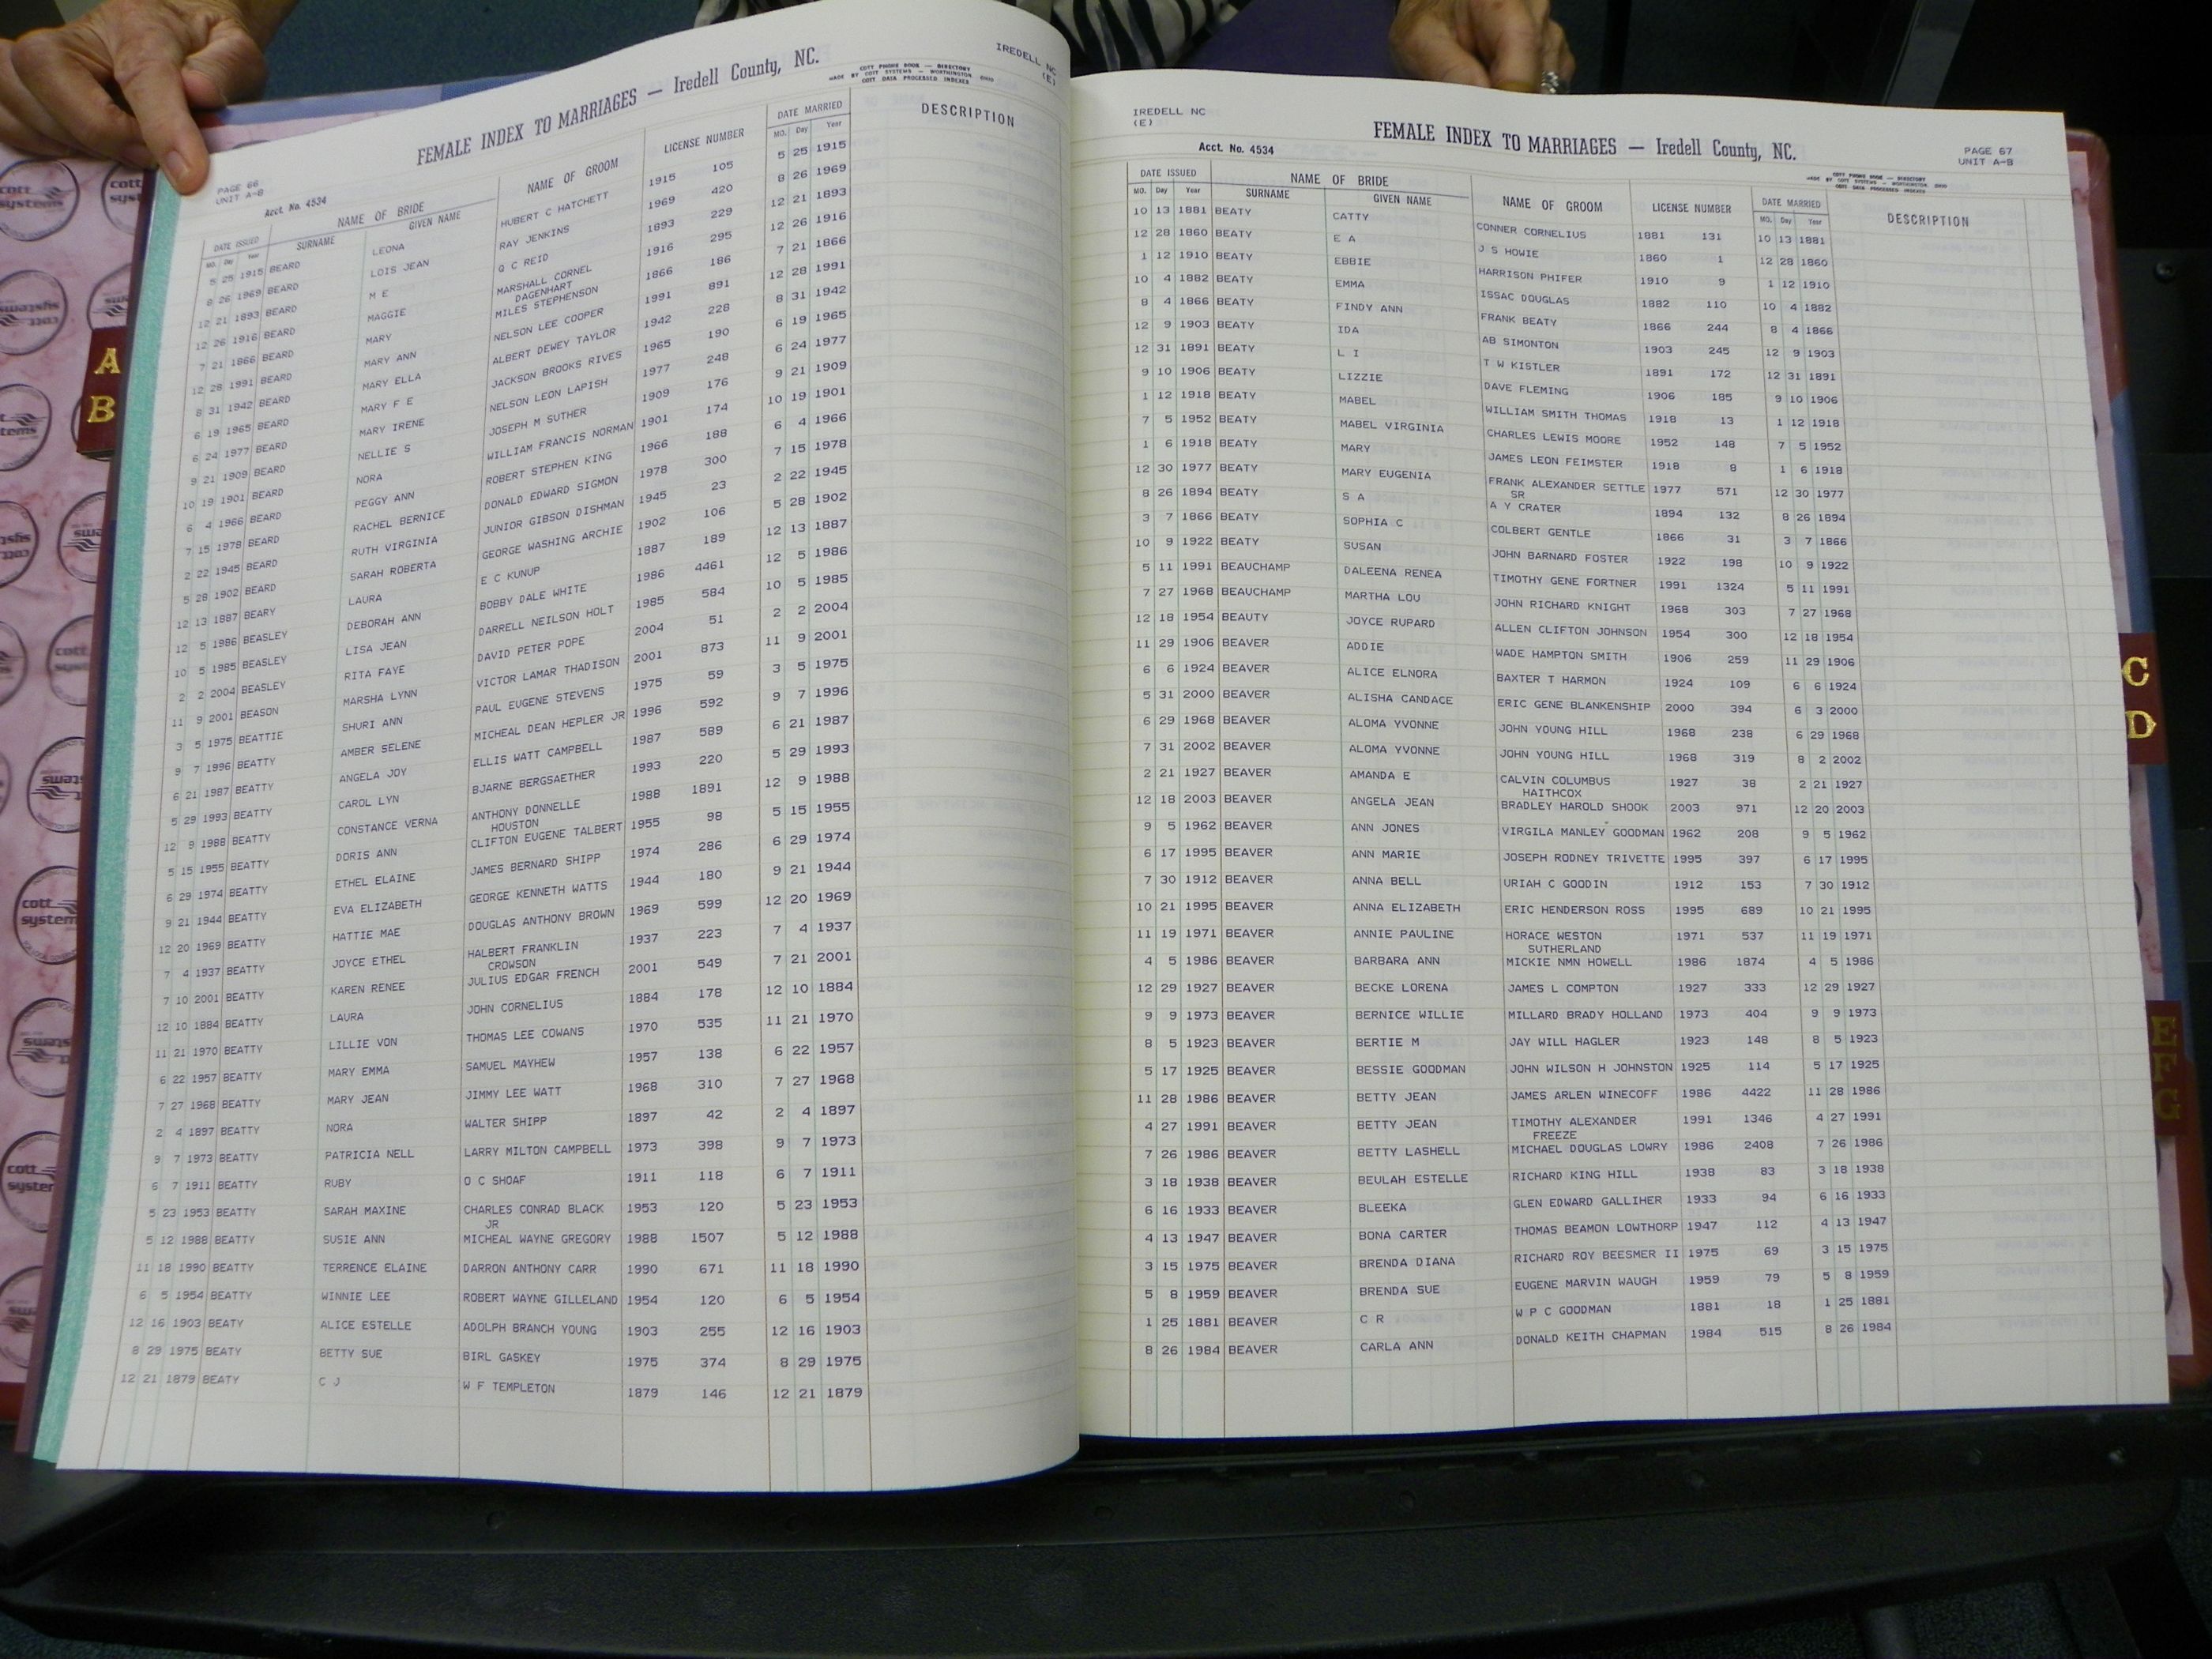 IREDELL NC
(E)
FEMALE INDEX TO MARRIAGES — Iredell County, NC.
COTT PHONE BOOK — DIRECTORY
MADE BY COTT SYSTEMS — WORTHINGTON OHIO
COTT DATA PROCESSED INDEXES
PAGE 66
UNIT A-B
Acct. No. 4534
DATE ISSUED NAME OF BRIDE NAME OF GROOM LICENSE NUMBER DATE MARRIED DESCRIPTION
MO. Day Year SURNAME GIVEN NAME MO. Day Year
5 25 1915 BEARD LEONA HUBERT C HATCHETT 1915 105 5 25 1915
8 26 1969 BEARD LOIS JEAN RAY JENKINS 1969 420 8 26 1969
12 21 1893 BEARD M E G C REID 1893 229 12 21 1893
12 26 1916 BEARD MAGGIE MARSHALL CORNEL 1916 295 12 26 1916
DAGENHART
7 21 1866 BEARD MARY MILES STEPHENSON 1866 186 7 21 1866
12 28 1991 BEARD MARY ANN NELSON LEE COOPER 1991 891 12 28 1991
8 31 1942 BEARD MARY ELLA ALBERT DEWEY TAYLOR 1942 228 8 31 1942
6 19 1965 BEARD MARY F E JACKSON BROOKS RIVES 1965 190 6 19 1965
6 24 1977 BEARD MARY IRENE NELSON LEON LAPISH 1977 248 6 24 1977
9 21 1909 BEARD NELLIE S JOSEPH M SUTHER 1909 176 9 21 1909
10 19 1901 BEARD NORA WILLIAM FRANCIS NORMAN 1901 174 10 19 1901
6 4 1966 BEARD PEGGY ANN ROBERT STEPHEN KING 1966 188 6 4 1966
7 15 1978 BEARD RACHEL BERNICE DONALD EDWARD SIGMON 1978 300 7 15 1978
2 22 1945 BEARD RUTH VIRGINIA JUNIOR GIBSON DISHMAN 1945 23 2 22 1945
5 28 1902 BEARD SARAH ROBERTA GEORGE WASHING ARCHIE 1902 106 5 28 1902
12 13 1887 BEARY LAURA E C KUNUP 1887 189 12 13 1887
12 5 1986 BEASLEY DEBORAH ANN BOBBY DALE WHITE 1986 4461 12 5 1986
10 5 1985 BEASLEY LISA JEAN DARRELL NEILSON HOLT 1985 584 10 5 1985
2 2 2004 BEASLEY RITA FAYE DAVID PETER POPE 2004 51 2 2 2004
11 9 2001 BEASON MARSHA LYNN VICTOR LAMAR THADISON 2001 873 11 9 2001
3 5 1975 BEATTIE SHURI ANN PAUL EUGENE STEVENS 1975 59 3 5 1975
9 7 1996 BEATTY AMBER SELENE MICHEAL DEAN HEPLER JR 1996 592 9 7 1996
6 21 1987 BEATTY ANGELA JOY ELLIS WATT CAMPBELL 1987 589 6 21 1987
5 29 1993 BEATTY CAROL LYN BJARNE BERGSAETHER 1993 220 5 29 1993
12 9 1988 BEATTY CONSTANCE VERNA ANTHONY DONNELLE 1988 1891 12 9 1988
HOUSTON
5 15 1955 BEATTY DORIS ANN CLIFTON EUGENE TALBERT 1955 98 5 15 1955
6 29 1974 BEATTY ETHEL ELAINE JAMES BERNARD SHIPP 1974 286 6 29 1974
9 21 1944 BEATTY EVA ELIZABETH GEORGE KENNETH WATTS 1944 180 9 21 1944
12 20 1969 BEATTY HATTIE MAE DOUGLAS ANTHONY BROWN 1969 599 12 20 1969
7 4 1937 BEATTY JOYCE ETHEL HALBERT FRANKLIN 1937 223 7 4 1937
CROWSON
7 10 2001 BEATTY KAREN RENEE JULIUS EDGAR FRENCH 2001 549 7 21 2001
12 10 1884 BEATTY LAURA JOHN CORNELIUS 1884 178 12 10 1884
11 21 1970 BEATTY LILLIE VON THOMAS LEE COWANS 1970 535 11 21 1970
6 22 1957 BEATTY MARY EMMA SAMUEL MAYHEW 1957 138 6 22 1957
7 27 1968 BEATTY MARY JEAN JIMMY LEE WATT 1968 310 7 27 1968
2 4 1897 BEATTY NORA WALTER SHIPP 1897 42 2 4 1897
9 7 1973 BEATTY PATRICIA NELL LARRY MILTON CAMPBELL 1973 398 9 7 1973
6 7 1911 BEATTY RUBY O C SHOAF 1911 118 6 7 1911
5 23 1953 BEATTY SARAH MAXINE CHARLES CONRAD BLACK 1953 120 5 23 1953
JR
5 12 1988 BEATTY SUSIE ANN MICHEAL WAYNE GREGORY 1988 1507 5 12 1988
11 18 1990 BEATTY TERRENCE ELAINE DARRON ANTHONY CARR 1990 671 11 18 1990
6 5 1954 BEATTY WINNIE LEE ROBERT WAYNE GILLELAND 1954 120 6 5 1954
12 16 1903 BEATY ALICE ESTELLE ADOLPH BRANCH YOUNG 1903 255 12 16 1903
8 29 1975 BEATY BETTY SUE BIRL GASKEY 1975 374 8 29 1975
12 21 1879 BEATY C J W F TEMPLETON 1879 146 12 21 1879
IREDELL NC
(E)
FEMALE INDEX TO MARRIAGES — Iredell County, NC.
Acct. No. 4534
PAGE 67
UNIT A-B
COTT PHONE BOOK — DIRECTORY
MADE BY COTT SYSTEMS — WORTHINGTON OHIO
COTT DATA PROCESSED INDEXES
DATE ISSUED NAME OF BRIDE NAME OF GROOM LICENSE NUMBER DATE MARRIED DESCRIPTION
MO. Day Year SURNAME GIVEN NAME MO. Day Year
10 13 1881 BEATY CATTY CONNER CORNELIUS 1881 131 10 13 1881
12 28 1860 BEATY E A J S HOWIE 1860 1 12 28 1860
1 12 1910 BEATY EBBIE HARRISON PHIFER 1910 9 1 12 1910
10 4 1882 BEATY EMMA ISSAC DOUGLAS 1882 110 10 4 1882
8 4 1866 BEATY FINDY ANN FRANK BEATY 1866 244 8 4 1866
12 9 1903 BEATY IDA AB SIMONTON 1903 245 12 9 1903
12 31 1891 BEATY L I T W KISTLER 1891 172 12 31 1891
9 10 1906 BEATY LIZZIE DAVE FLEMING 1906 185 9 10 1906
1 12 1918 BEATY MABEL WILLIAM SMITH THOMAS 1918 13 1 12 1918
7 5 1952 BEATY MABEL VIRGINIA CHARLES LEWIS MOORE 1952 148 7 5 1952
1 6 1918 BEATY MARY JAMES LEON FEIMSTER 1918 8 1 6 1918
12 30 1977 BEATY MARY EUGENIA FRANK ALEXANDER SETTLE 1977 571 12 30 1977
SR
8 26 1894 BEATY S A A Y CRATER 1894 132 8 26 1894
3 7 1866 BEATY SOPHIA C COLBERT GENTLE 1866 31 3 7 1866
10 9 1922 BEATY SUSAN JOHN BARNARD FOSTER 1922 198 10 9 1922
5 11 1991 BEAUCHAMP DALEENA RENEA TIMOTHY GENE FORTNER 1991 1324 5 11 1991
7 27 1968 BEAUCHAMP MARTHA LOU JOHN RICHARD KNIGHT 1968 303 7 27 1968
12 18 1954 BEAUTY JOYCE RUPARD ALLEN CLIFTON JOHNSON 1954 300 12 18 1954
11 29 1906 BEAVER ADDIE WADE HAMPTON SMITH 1906 259 11 29 1906
6 6 1924 BEAVER ALICE ELNORA BAXTER T HARMON 1924 109 6 6 1924
5 31 2000 BEAVER ALISHA CANDACE ERIC GENE BLANKENSHIP 2000 394 6 3 2000
6 29 1968 BEAVER ALOMA YVONNE JOHN YOUNG HILL 1968 238 6 29 1968
7 31 2002 BEAVER ALOMA YVONNE JOHN YOUNG HILL 1968 319 8 2 2002
2 21 1927 BEAVER AMANDA E CALVIN COLUMBUS 1927 38 2 21 1927
HAITHCOX
12 18 2003 BEAVER ANGELA JEAN BRADLEY HAROLD SHOOK 2003 971 12 20 2003
9 5 1962 BEAVER ANN JONES VIRGILA MANLEY GOODMAN 1962 208 9 5 1962
6 17 1995 BEAVER ANN MARIE JOSEPH RODNEY TRIVETTE 1995 397 6 17 1995
7 30 1912 BEAVER ANNA BELL URIAH C GOODIN 1912 153 7 30 1912
10 21 1995 BEAVER ANNA ELIZABETH ERIC HENDERSON ROSS 1995 689 10 21 1995
11 19 1971 BEAVER ANNIE PAULINE HORACE WESTON 1971 537 11 19 1971
SUTHERLAND
4 5 1986 BEAVER BARBARA ANN MICKIE NMN HOWELL 1986 1874 4 5 1986
12 29 1927 BEAVER BECKE LORENA JAMES L COMPTON 1927 333 12 29 1927
9 9 1973 BEAVER BERNICE WILLIE MILLARD BRADY HOLLAND 1973 404 9 9 1973
8 5 1923 BEAVER BERTIE M JAY WILL HAGLER 1923 148 8 5 1923
5 17 1925 BEAVER BESSIE GOODMAN JOHN WILSON H JOHNSTON 1925 114 5 17 1925
11 28 1986 BEAVER BETTY JEAN JAMES ARLEN WINECOFF 1986 4422 11 28 1986
4 27 1991 BEAVER BETTY JEAN TIMOTHY ALEXANDER 1991 1346 4 27 1991
FREEZE
7 26 1986 BEAVER BETTY LASHELL MICHAEL DOUGLAS LOWRY 1986 2408 7 26 1986
3 18 1938 BEAVER BEULAH ESTELLE RICHARD KING HILL 1938 83 3 18 1938
6 16 1933 BEAVER BLEEKA GLEN EDWARD GALLIHER 1933 94 6 16 1933
4 13 1947 BEAVER BONA CARTER THOMAS BEAMON LOWTHORP 1947 112 4 13 1947
3 15 1975 BEAVER BRENDA DIANA RICHARD ROY BEESMER II 1975 69 3 15 1975
5 8 1959 BEAVER BRENDA SUE EUGENE MARVIN WAUGH 1959 79 5 8 1959
1 25 1881 BEAVER C R W P C GOODMAN 1881 18 1 25 1881
8 26 1984 BEAVER CARLA ANN DONALD KEITH CHAPMAN 1984 515 8 26 1984
A
B
C
D
E
F
G
cott
systems